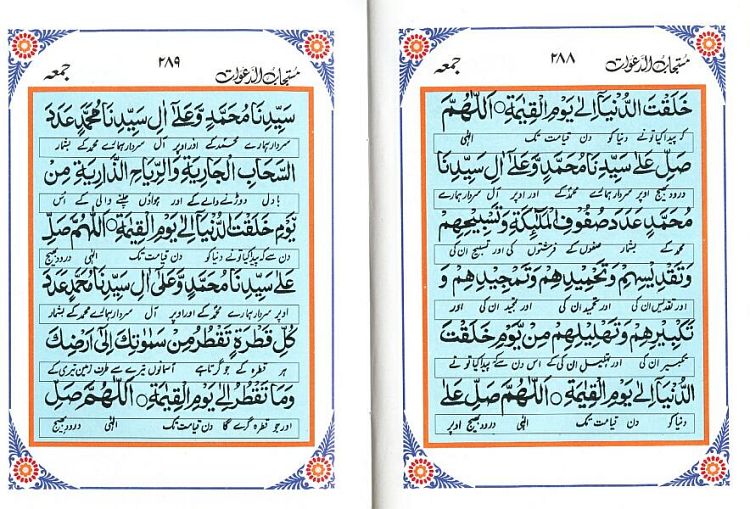 مستجاب الدعوات ۲۸۸ جمعہ
خَلَقْتَ الدُّنْيَآ اِلٰى يَوْمِ الْقِيٰمَةِ ○ اَللّٰهُمَّ
کہ پیدا کیا تو نے دنیا کو دن قیامت تک الٰہی
صَلِّ عَلٰى سَيِّدِنَا مُحَمَّدٍ وَّعَلٰٓى اٰلِ سَيِّدِنَا
درود بھیج اوپر سردار ہمارے محمد کے اور اوپر آل سردار ہمارے
مُحَمَّدٍ عَدَدَ صُفُوْفِ الْمَلٰٓئِكَةِ وَتَسْبِيْحِهِمْ
محمد کے بشمار صفوں کے فرشتوں کی اور تسبیح ان کی
وَتَقْدِيْسِهِمْ وَتَحْمِيْدِهِمْ وَتَمْجِيْدِهِمْ وَ
اور تقدیس ان کی اور تحمید ان کی اور تمجید ان کی اور
تَكْبِيْرِهِمْ وَتَهْلِيْلِهِمْ مِنْ يَّوْمِ خَلَقْتَ
تکبیر ان کی اور تہلیل ان کی کے اس دن سے کہ پیدا کیا تو نے
الدُّنْيَآ اِلٰى يَوْمِ الْقِيٰمَةِ ○ اَللّٰهُمَّ صَلِّ عَلٰى
دنیا کو دن قیامت تک الٰہی درود بھیج اوپر
مستجاب الدعوات ۲۸۹ جمعہ
سَيِّدِنَا مُحَمَّدٍ وَّعَلٰٓى اٰلِ سَيِّدِنَا مُحَمَّدٍ عَدَدَ
سردار ہمارے محمد کے اور اوپر آل سردار ہمارے محمد کے بشمار
السَّحَابِ الْجَارِيَةِ وَالرِّيَاحِ الذَّارِيَةِ مِنْ
بادل دوڑنے والے کے اور ہواؤں چلنے والی کے اس
يَّوْمِ خَلَقْتَ الدُّنْيَآ اِلٰى يَوْمِ الْقِيٰمَةِ ○ اَللّٰهُمَّ صَلِّ
دن سے کہ پیدا کیا تو نے دنیا کو دن قیامت تک الٰہی درود بھیج
عَلٰى سَيِّدِنَا مُحَمَّدٍ وَّعَلٰٓى اٰلِ سَيِّدِنَا مُحَمَّدٍ عَدَدَ
اوپر سردار ہمارے محمد کے اور اوپر آل سردار ہمارے محمد کے بشمار
كُلِّ قَطْرَةٍ تَقْطُرُ مِنْ سَمٰوٰتِكَ اِلٰٓى اَرْضِكَ
ہر قطرہ کے جو گرتا ہے آسمانوں تیرے سے طرف زمین تیری کے
وَمَا تَقْطُرُ اِلٰى يَوْمِ الْقِيٰمَةِ ○ اَللّٰهُمَّ صَلِّ
اور جو قطرہ گرے گا دن قیامت تک الٰہی درود بھیج